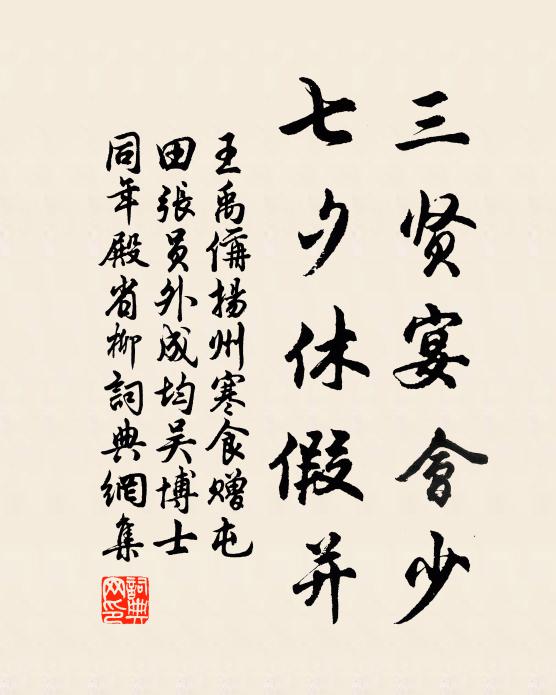 三贤宴會少
七夕休假并
王禹偁揚州寒食赠屯
田張员外成均吴博士
同年殿省柳詞典網集
詞典
网印